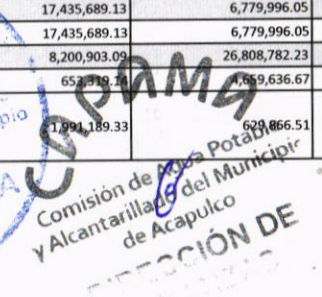 17,435,689.13 6,779,996.05
17,435,689.13 6,779,996.05
8,200,903.09 26,808,782.23
653,319.14 4,659,636.67
1,991,189.33 629,866.51
CAPAMA
Comisión de Agua Potable
y Alcantarillado del Municipio
de Acapulco
DIRECCIÓN DE